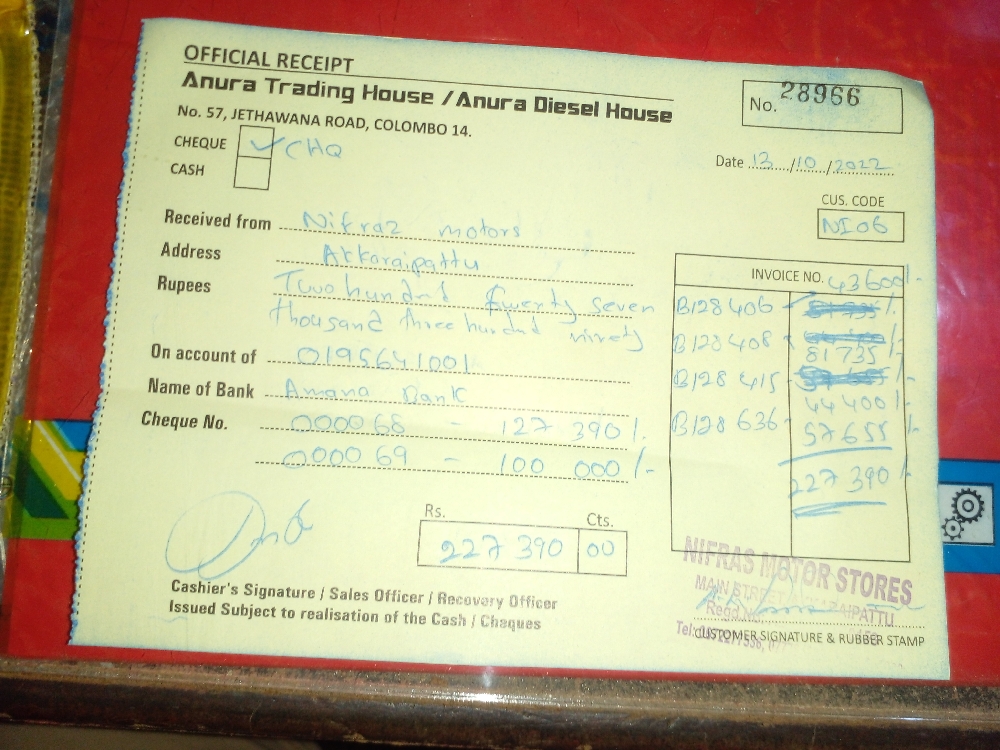 OFFICIAL RECEIPT
Anura Trading House / Anura Diesel House
No. 57, JETHAWANA ROAD, COLOMBO 14.
No. 28966
CHEQUE ✓ CHQ
CASH
Date 13 / 10 / 2022
CUS. CODE
NI06
Received from Nifraz motors
Address Akkaraipattu
Rupees Two hundred twenty seven
thousand three hundred ninety
On account of 0195641001
Name of Bank Amana Bank
Cheque No. 000068 - 127 390/-
000069 - 100 000/-
INVOICE NO. 43600/-
B128406
B128408 81735/-
B128415 44400/-
B128636 57655/-
227 390/-
Rs. Cts.
227 390 00
Cashier's Signature / Sales Officer / Recovery Officer
Issued Subject to realisation of the Cash / Chaques
NIFRAS MOTOR STORES
MAIN STREET
Regd.No.
Tel:
CUSTOMER SIGNATURE & RUBBER STAMP